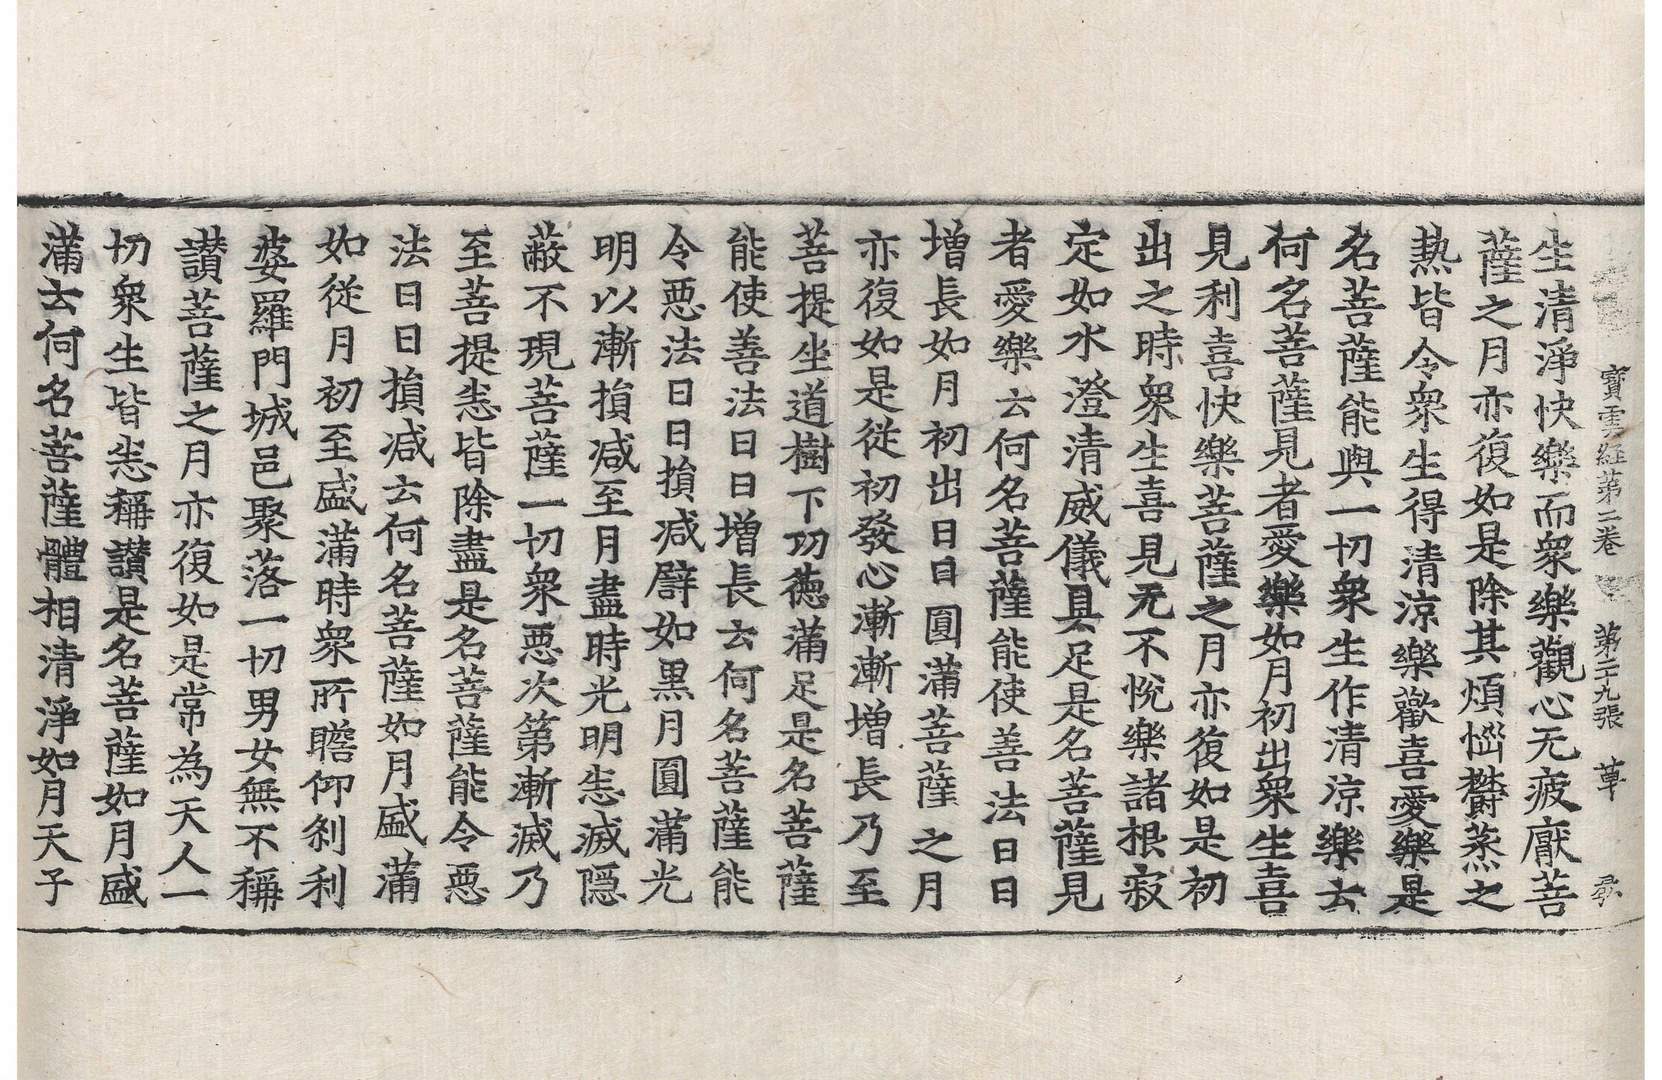 寶雲經第二卷 第二十九張 草
生清淨快樂而衆樂觀心无疲厭菩
薩之月亦復如是除其煩惱欝蒸之
熱皆令衆生得清涼樂歡喜愛樂是
名菩薩能與一切衆生作清涼樂云
何名菩薩見者愛樂如月初出衆生喜
見利喜快樂菩薩之月亦復如是初
出之時衆生喜見无不悅樂諸根寂
定如水澄清威儀具足是名菩薩見
者愛樂云何名菩薩能使善法日日
增長如月初出日日圓滿菩薩之月
亦復如是從初發心漸漸增長乃至
菩提坐道樹下功德滿足是名菩薩
能使善法日日增長云何名菩薩能
令惡法日日損減譬如黑月圓滿光
明以漸損減至月盡時光明悉滅隱
蔽不現菩薩一切衆惡次第漸滅乃
至菩提悉皆除盡是名菩薩能令惡
法日日損減云何名菩薩如月盛滿
如從月初至盛滿時衆所瞻仰刹利
婆羅門城邑聚落一切男女無不稱
讃菩薩之月亦復如是常為天人一
切衆生皆悉稱讃是名菩薩如月盛
滿云何名菩薩體相清淨如月天子